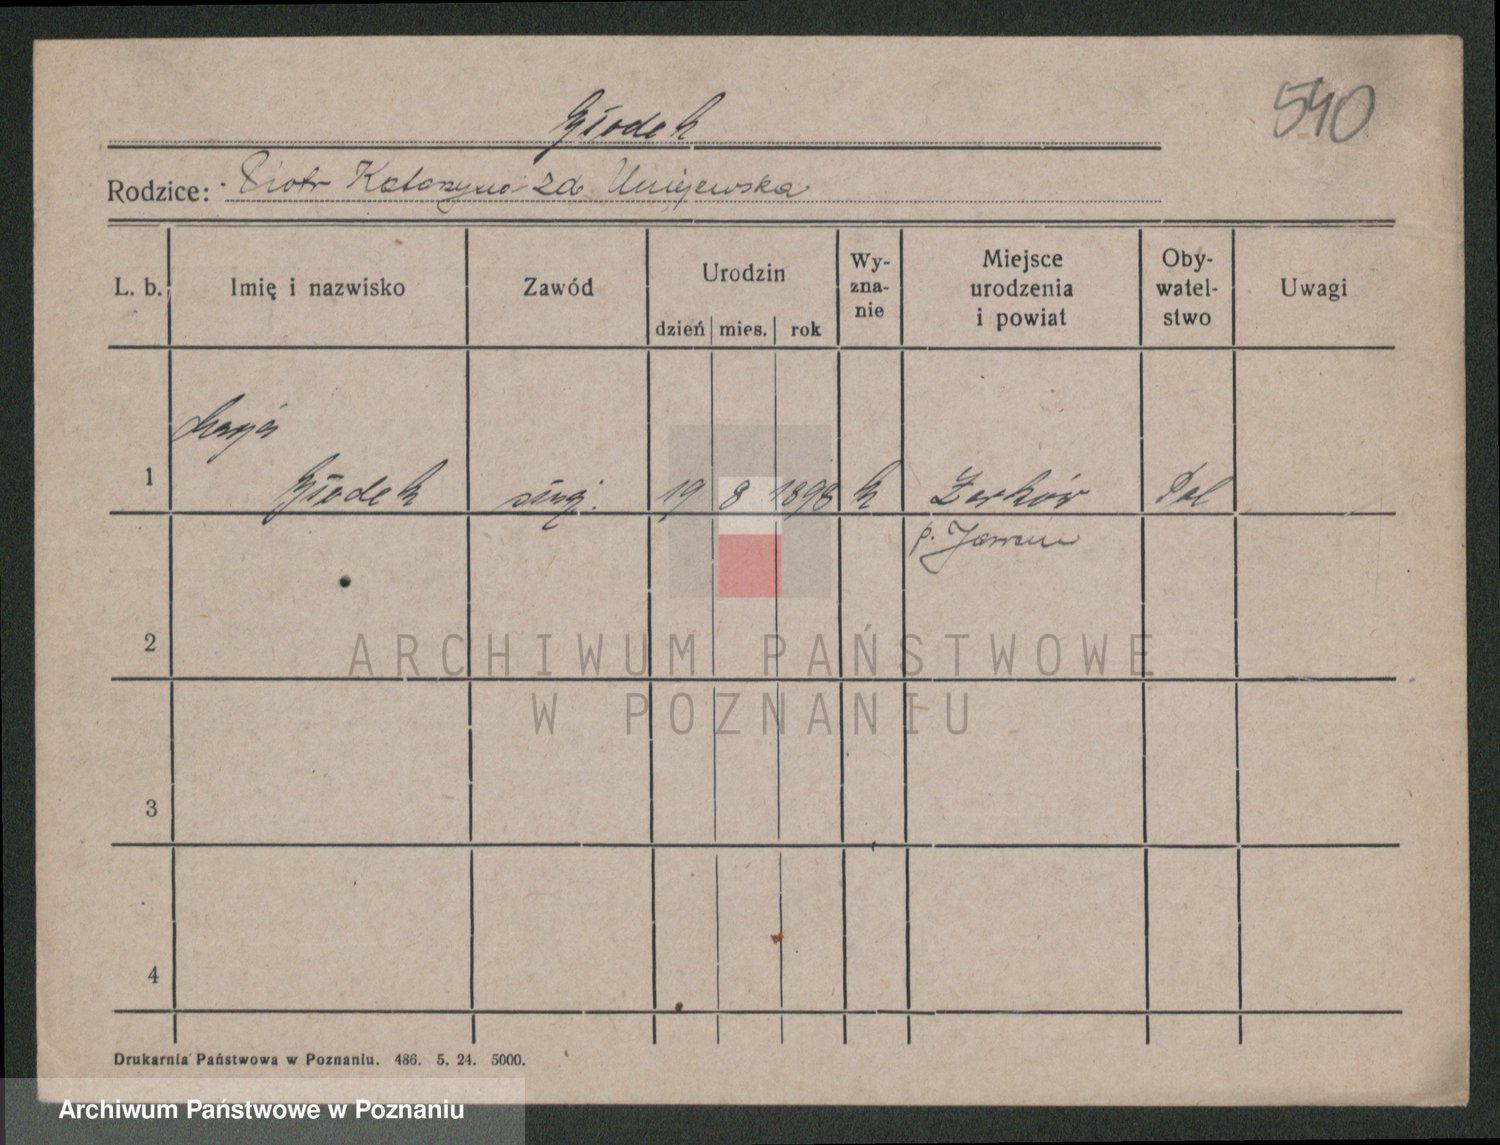 540
Głodek
Rodzice: Piotr Katarzyna zd Uniejewska
L. b. Imię i nazwisko Zawód Urodzin dzień mies. rok Wy-zna-nie Miejsce urodzenia i powiat Oby-watel-stwo Uwagi
Marja
1 Głodek służ. 19 8 1898 k Żerków Pol
p. Jarocin
2
ARCHIWUM PAŃSTWOWE
W POZNANIU
3
4
Drukarnia Państwowa w Poznaniu. 486. 5. 24. 5000.
Archiwum Państwowe w Poznaniu